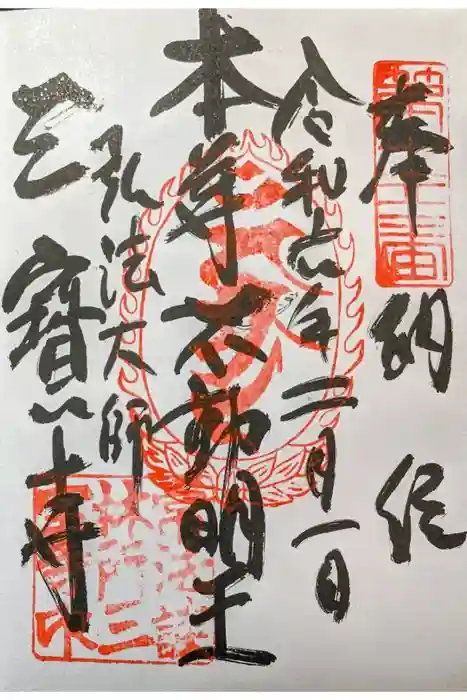 奉納経
令和六年二月一日
本尊不動明王
弘法大師
三宝寺